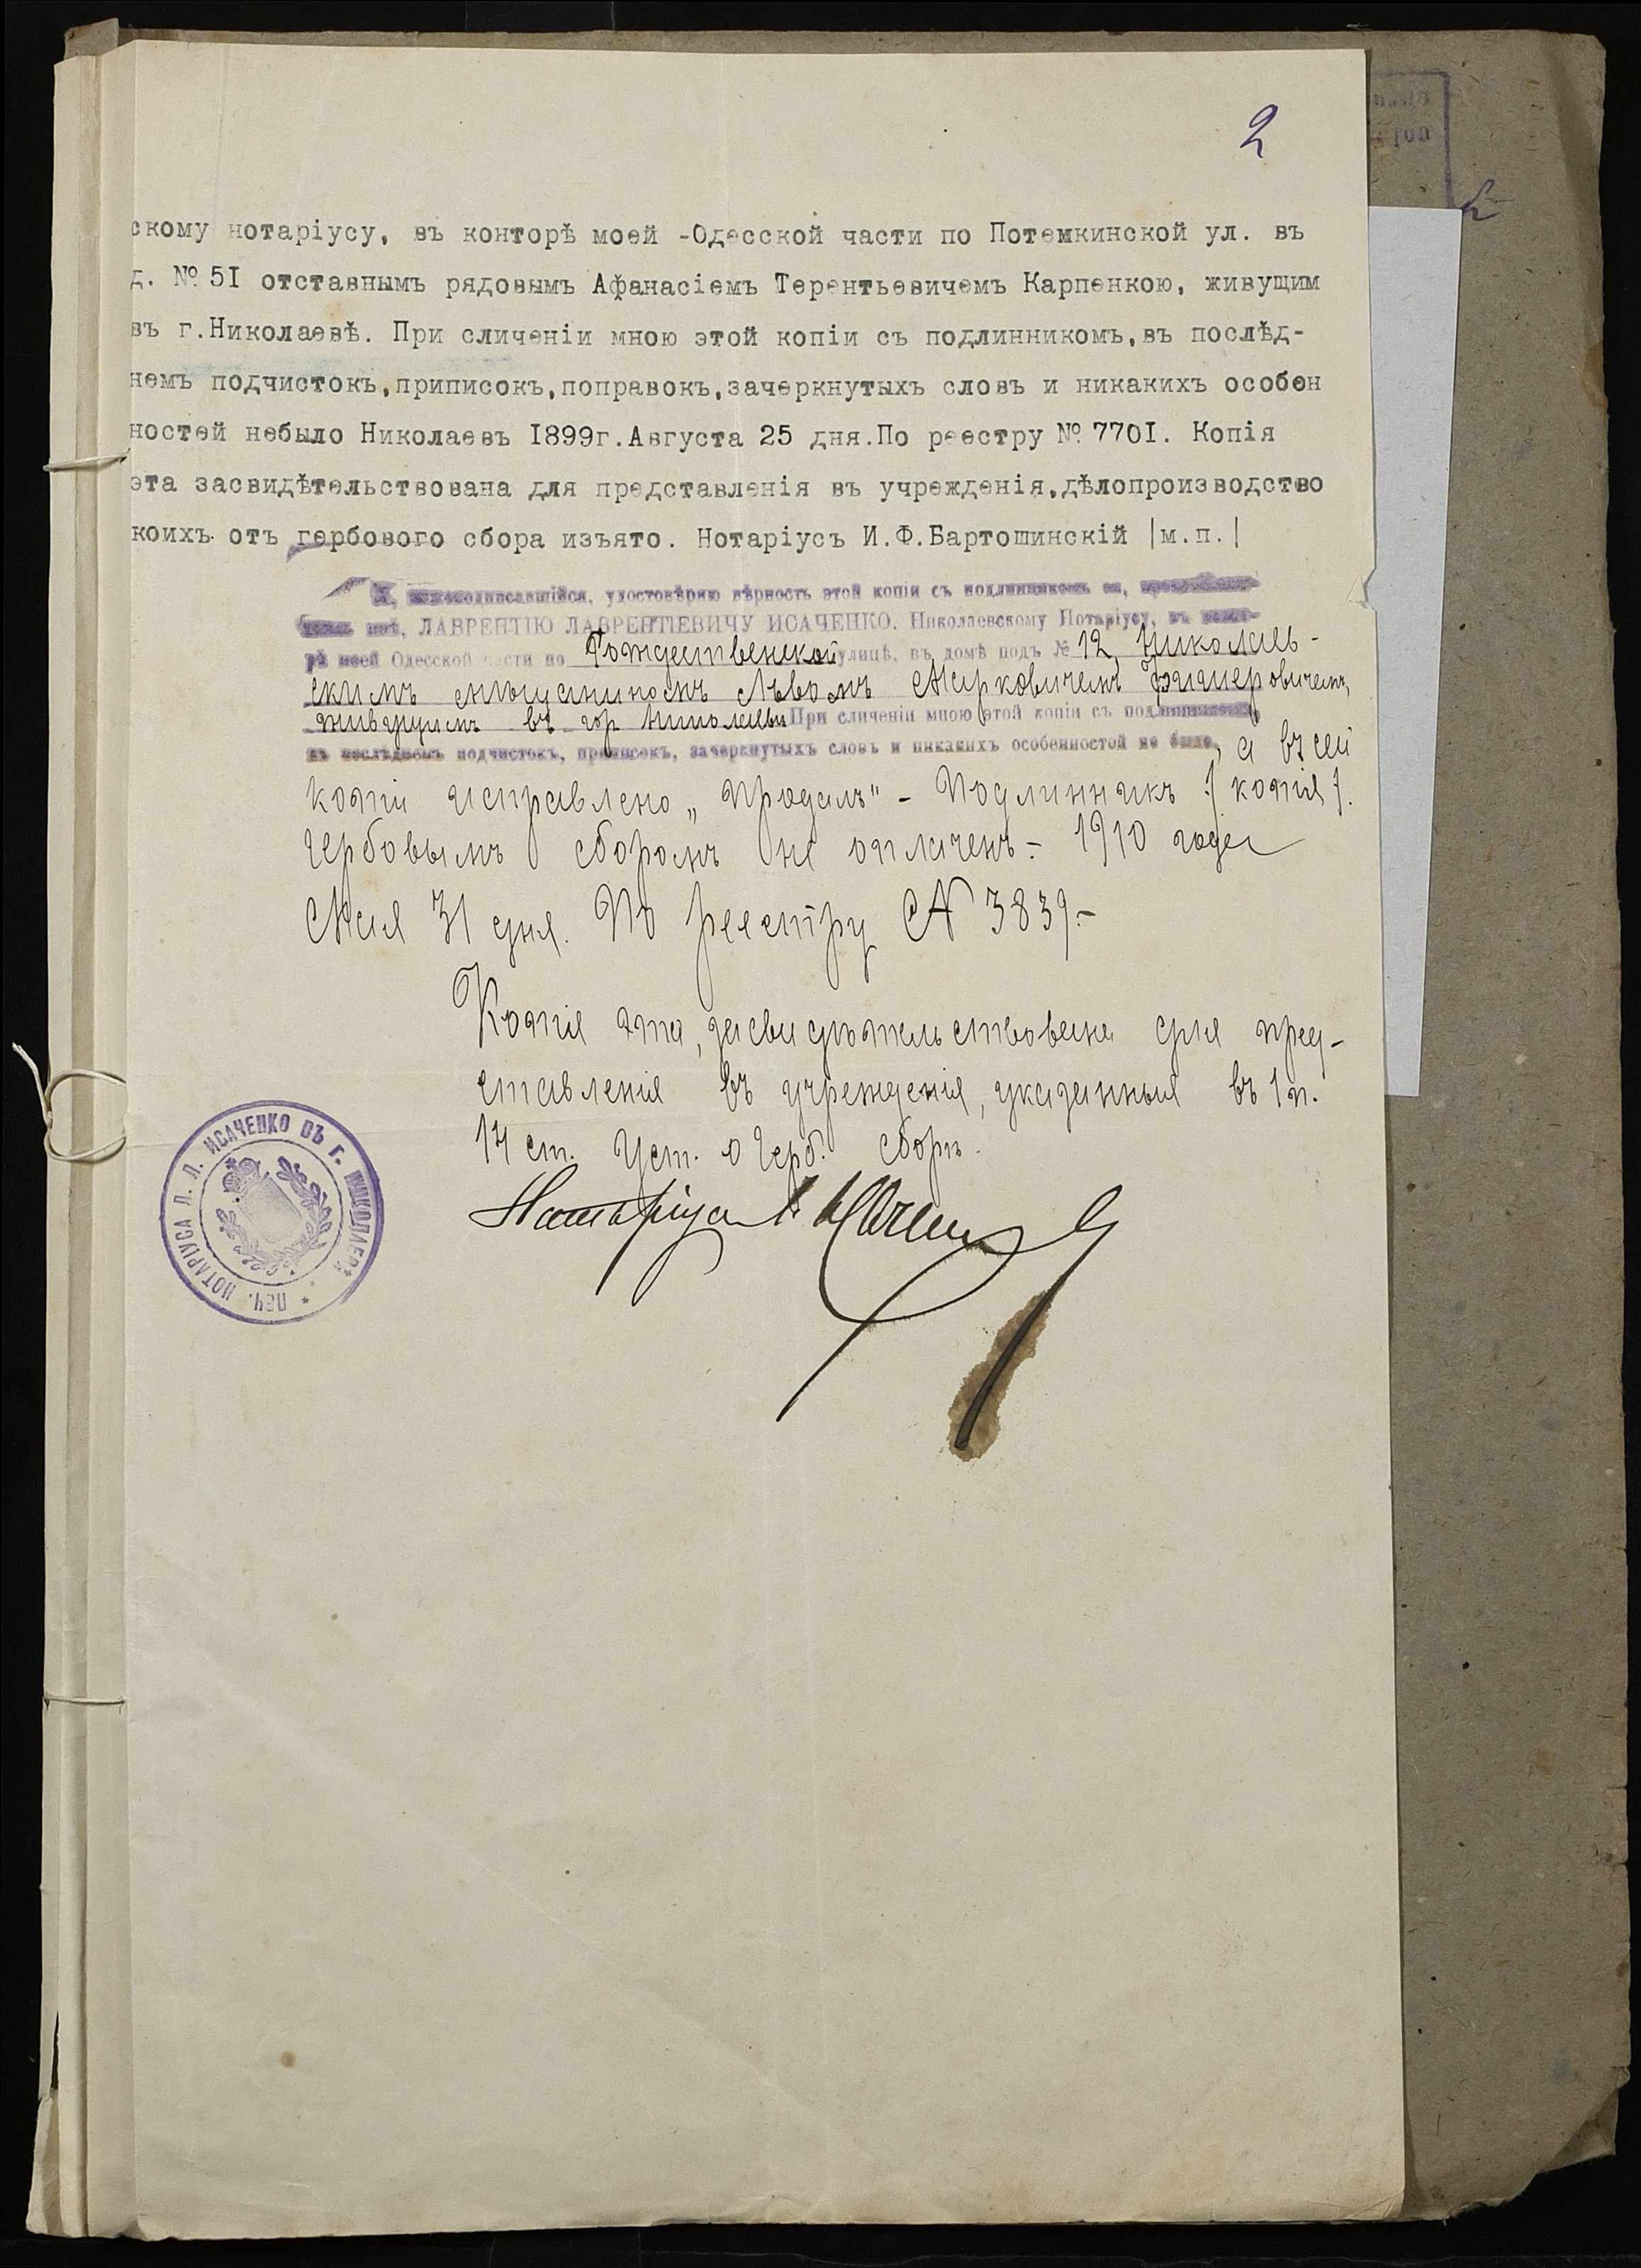 2
скому нотаріусу, въ конторѣ моей -Одесской части по Потемкинской ул. въ
д. № 51 отставнымъ рядовымъ Афанасіемъ Терентьевичемъ Карпенкою, живущим
въ г.Николаевѣ. При сличеніи мною этой копіи съ подлинникомъ,въ послѣд-
немъ подчистокъ,приписокъ,поправокъ,зачеркнутыхъ словъ и никакихъ особен
ностей небыло Николаевъ 1899г.Августа 25 дня.По реестру № 7701. Копія
эта засвидѣтельствована для представленія въ учрежденія,дѣлопроизводство
коихъ отъ гербового сбора изъято. Нотаріусъ И.Ф.Бартошинскій |м.п.|
Я, нижеподписавшійся, удостовѣряю вѣрность этой копіи съ подлинникомъ ея,
мнѣ, ЛАВРЕНТІЮ ЛАВРЕНТІЕВИЧУ ИСАЧЕНКО, Николаевскому Нотаріусу, въ конто-
рѣ моей Одесской части по Рождественской улицѣ, въ домѣ подъ № 12, Николаев-
скимъ мѣщаниномъ Львомъ Марковичемъ
живущимъ въ гор Николаевѣ При сличеніи мною этой копіи съ подлинникомъ,
въ послѣднемъ подчистокъ, приписокъ, зачеркнутыхъ словъ и никакихъ особенностей не было, а въ сей
копіи исправлено „продалъ" - Подлинникъ /копія/.
гербовымъ сборомъ не оплаченъ.- 1910 года
Мая 31 дня. По реестру № 3839.-
Копія эта, засвидѣтельствована для пред-
ставленія въ учрежденія, указанныя въ 1 п.
14 ст. Уст. о Герб. сборѣ.
Нотаріусъ Л. Исаченко
* ПЕЧ. НОТАРІУСА Л. Л. ИСАЧЕНКО ВЪ Г. НИКОЛАЕВѢ